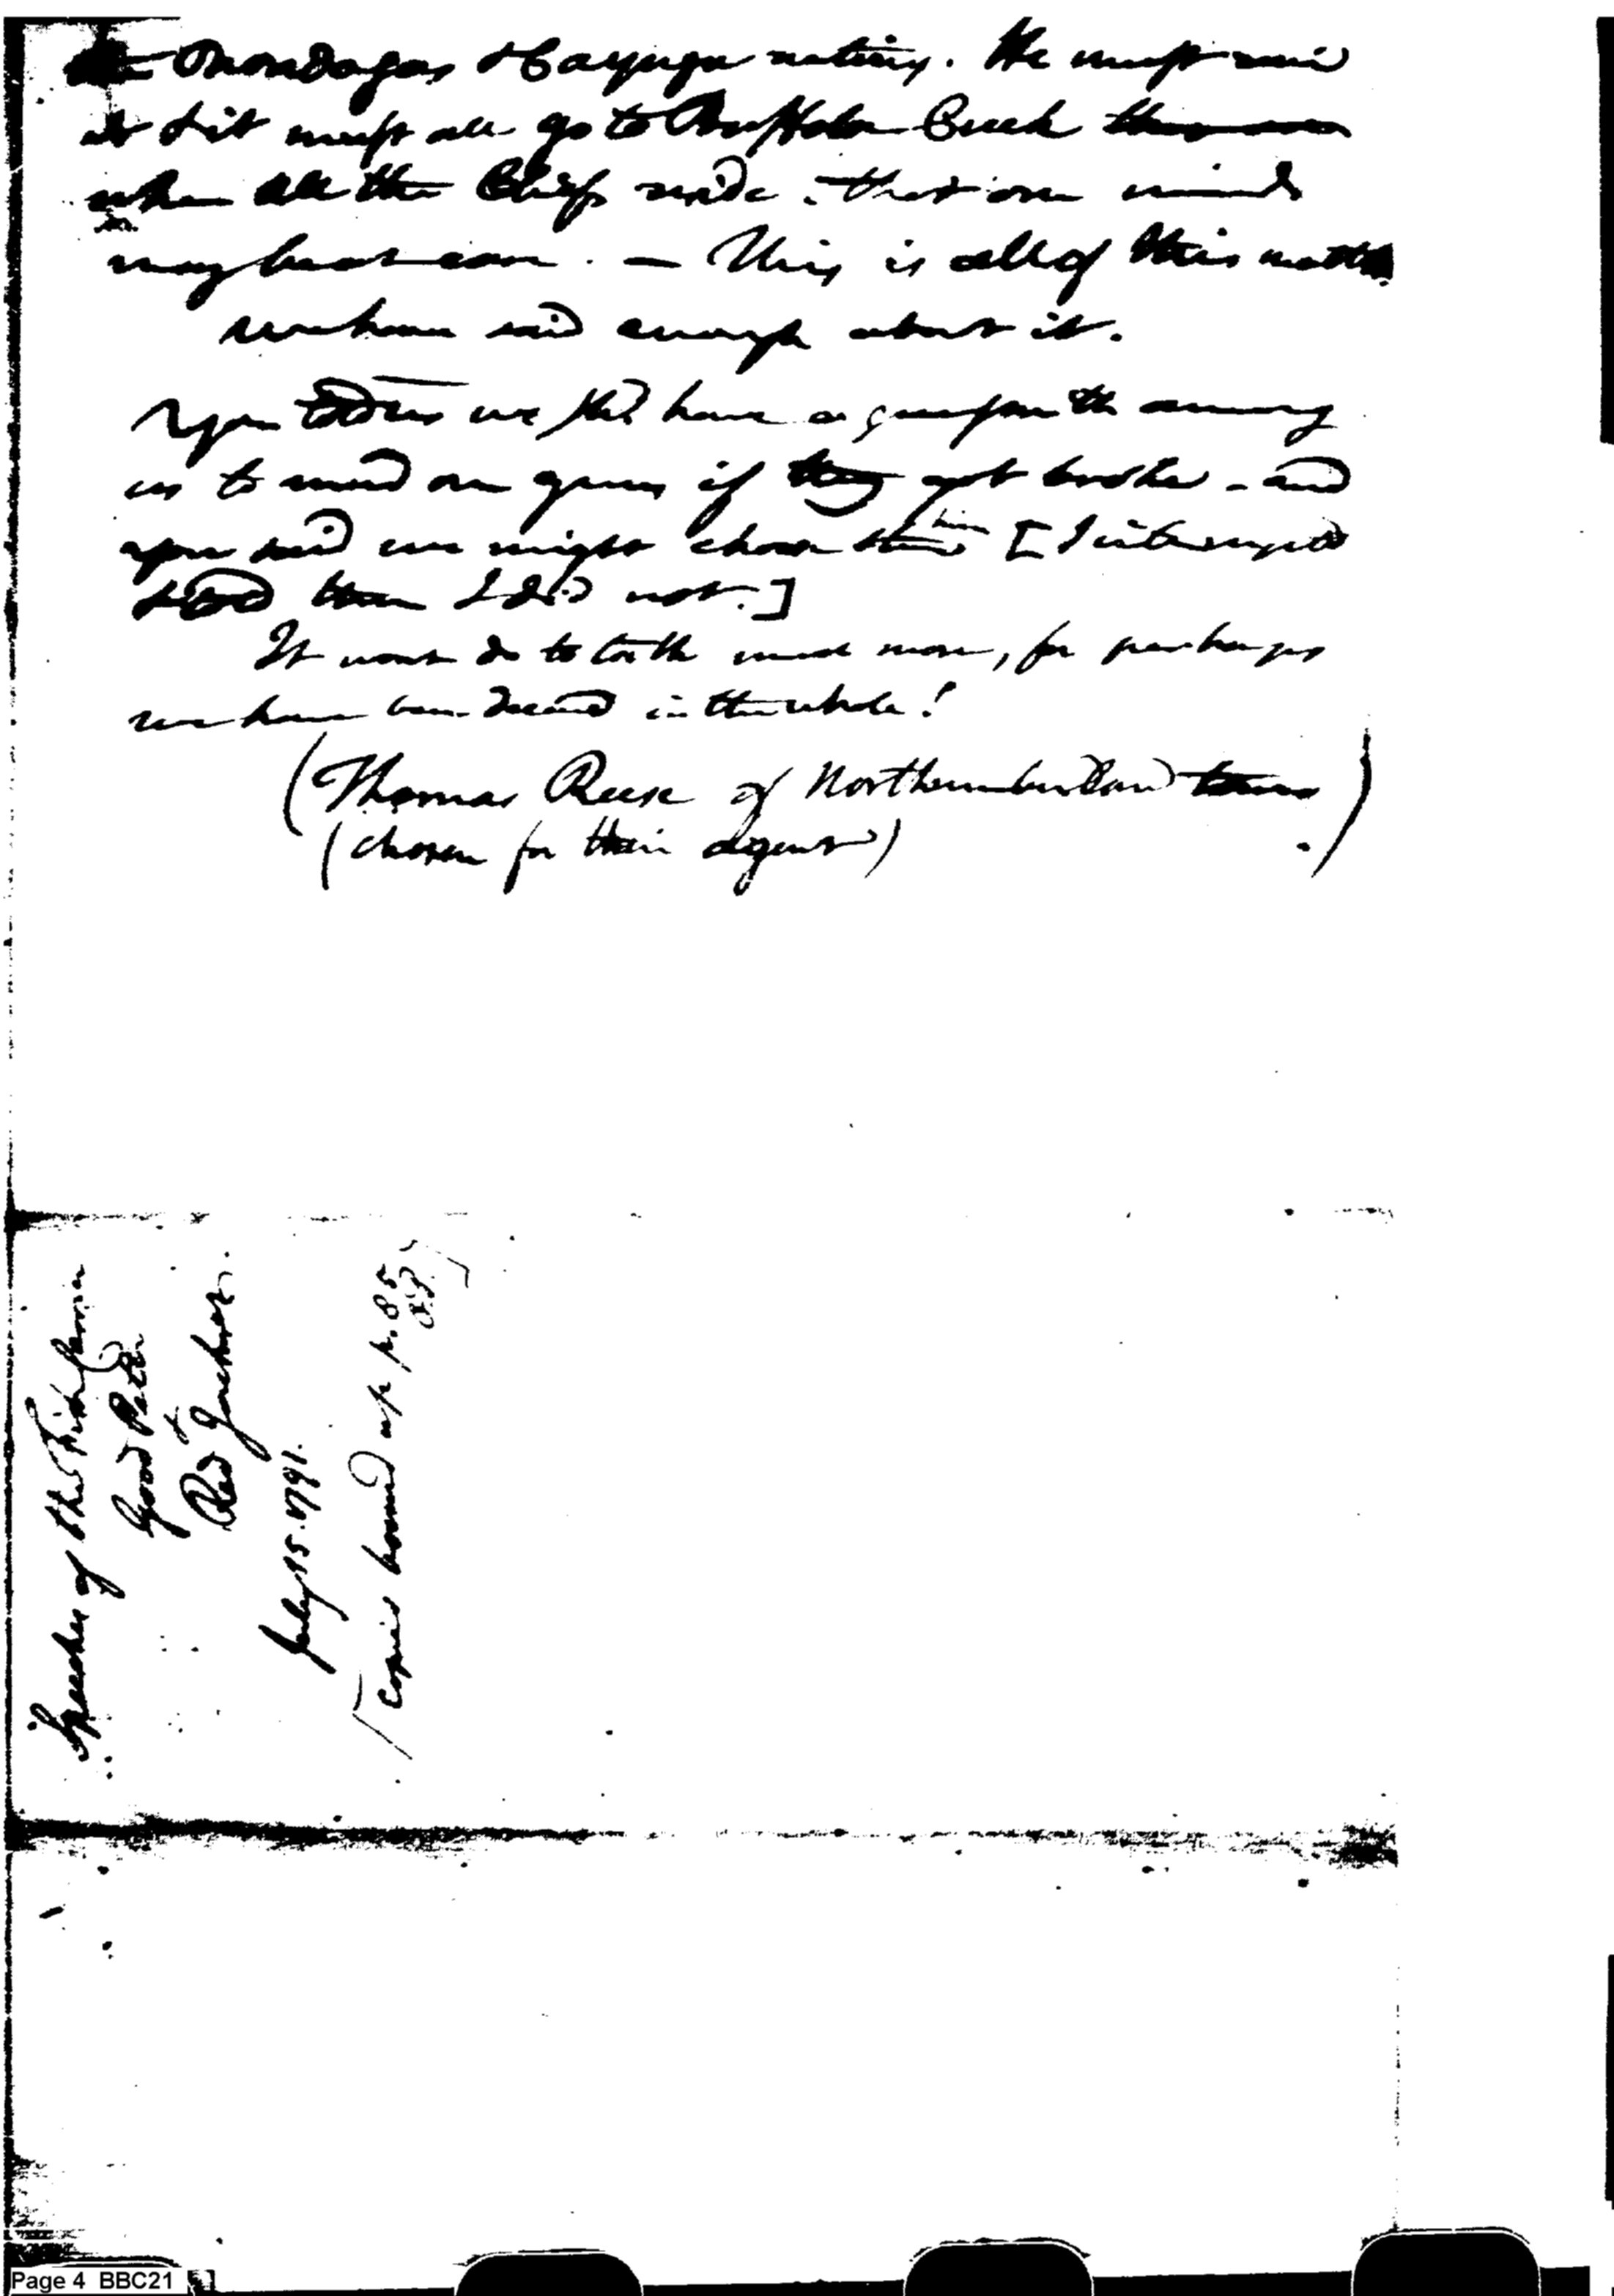 Onondagas & Cayuga nations. We must mind
it & it must all go to Buffalo Creek
when all the Chiefs reside that our minds
may be at ease. — This is all of this matter
we have said enough about it.
You told us we shd have a gunsmith among
us to mend our guns if they got broke - and
you said we might chose him [I interrupted
& told them I did not.]
It wont do to talk much more, for perhaps
we have been deceived in the whole!
(Thomas Rees of Northumberland town)
(chosen for their agent)
Speeches of the Fish Carrier
Good Peter
Red Jacket.
July 15. 1791.
Copied bound up p. 85
Page 4 BBC21